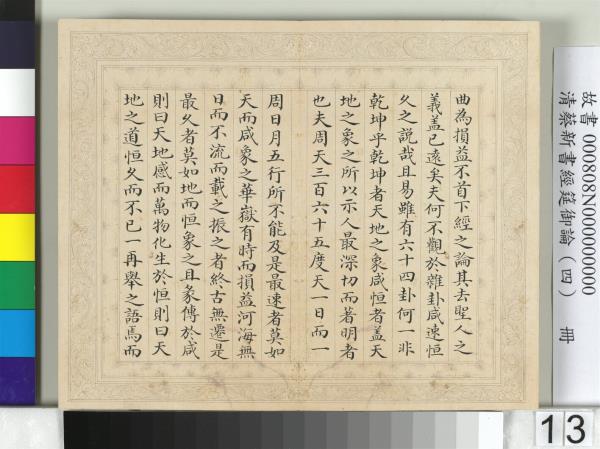 曲為損益不首下經之論其去聖人之
義蓋已遠矣夫何不觀於雜卦咸速恒
久之說哉且易雖有六十四卦何一非
乾坤乎乾坤者天地之象咸恒者蓋天
地之象之所以示人最深切而著明者
也夫周天三百六十五度天一日而一
周日月五行所不能及是最速者莫如
天而咸象之華嶽有時而損益河海無
日而不流而載之振之者終古無遷是
最久者莫如地而恒象之且彖傳於咸
則曰天地感而萬物化生於恒則曰天
地之道恒久而不已一再舉之語焉而
故書 000808N000000000
清蔡新書經筵御論(四) 冊
13